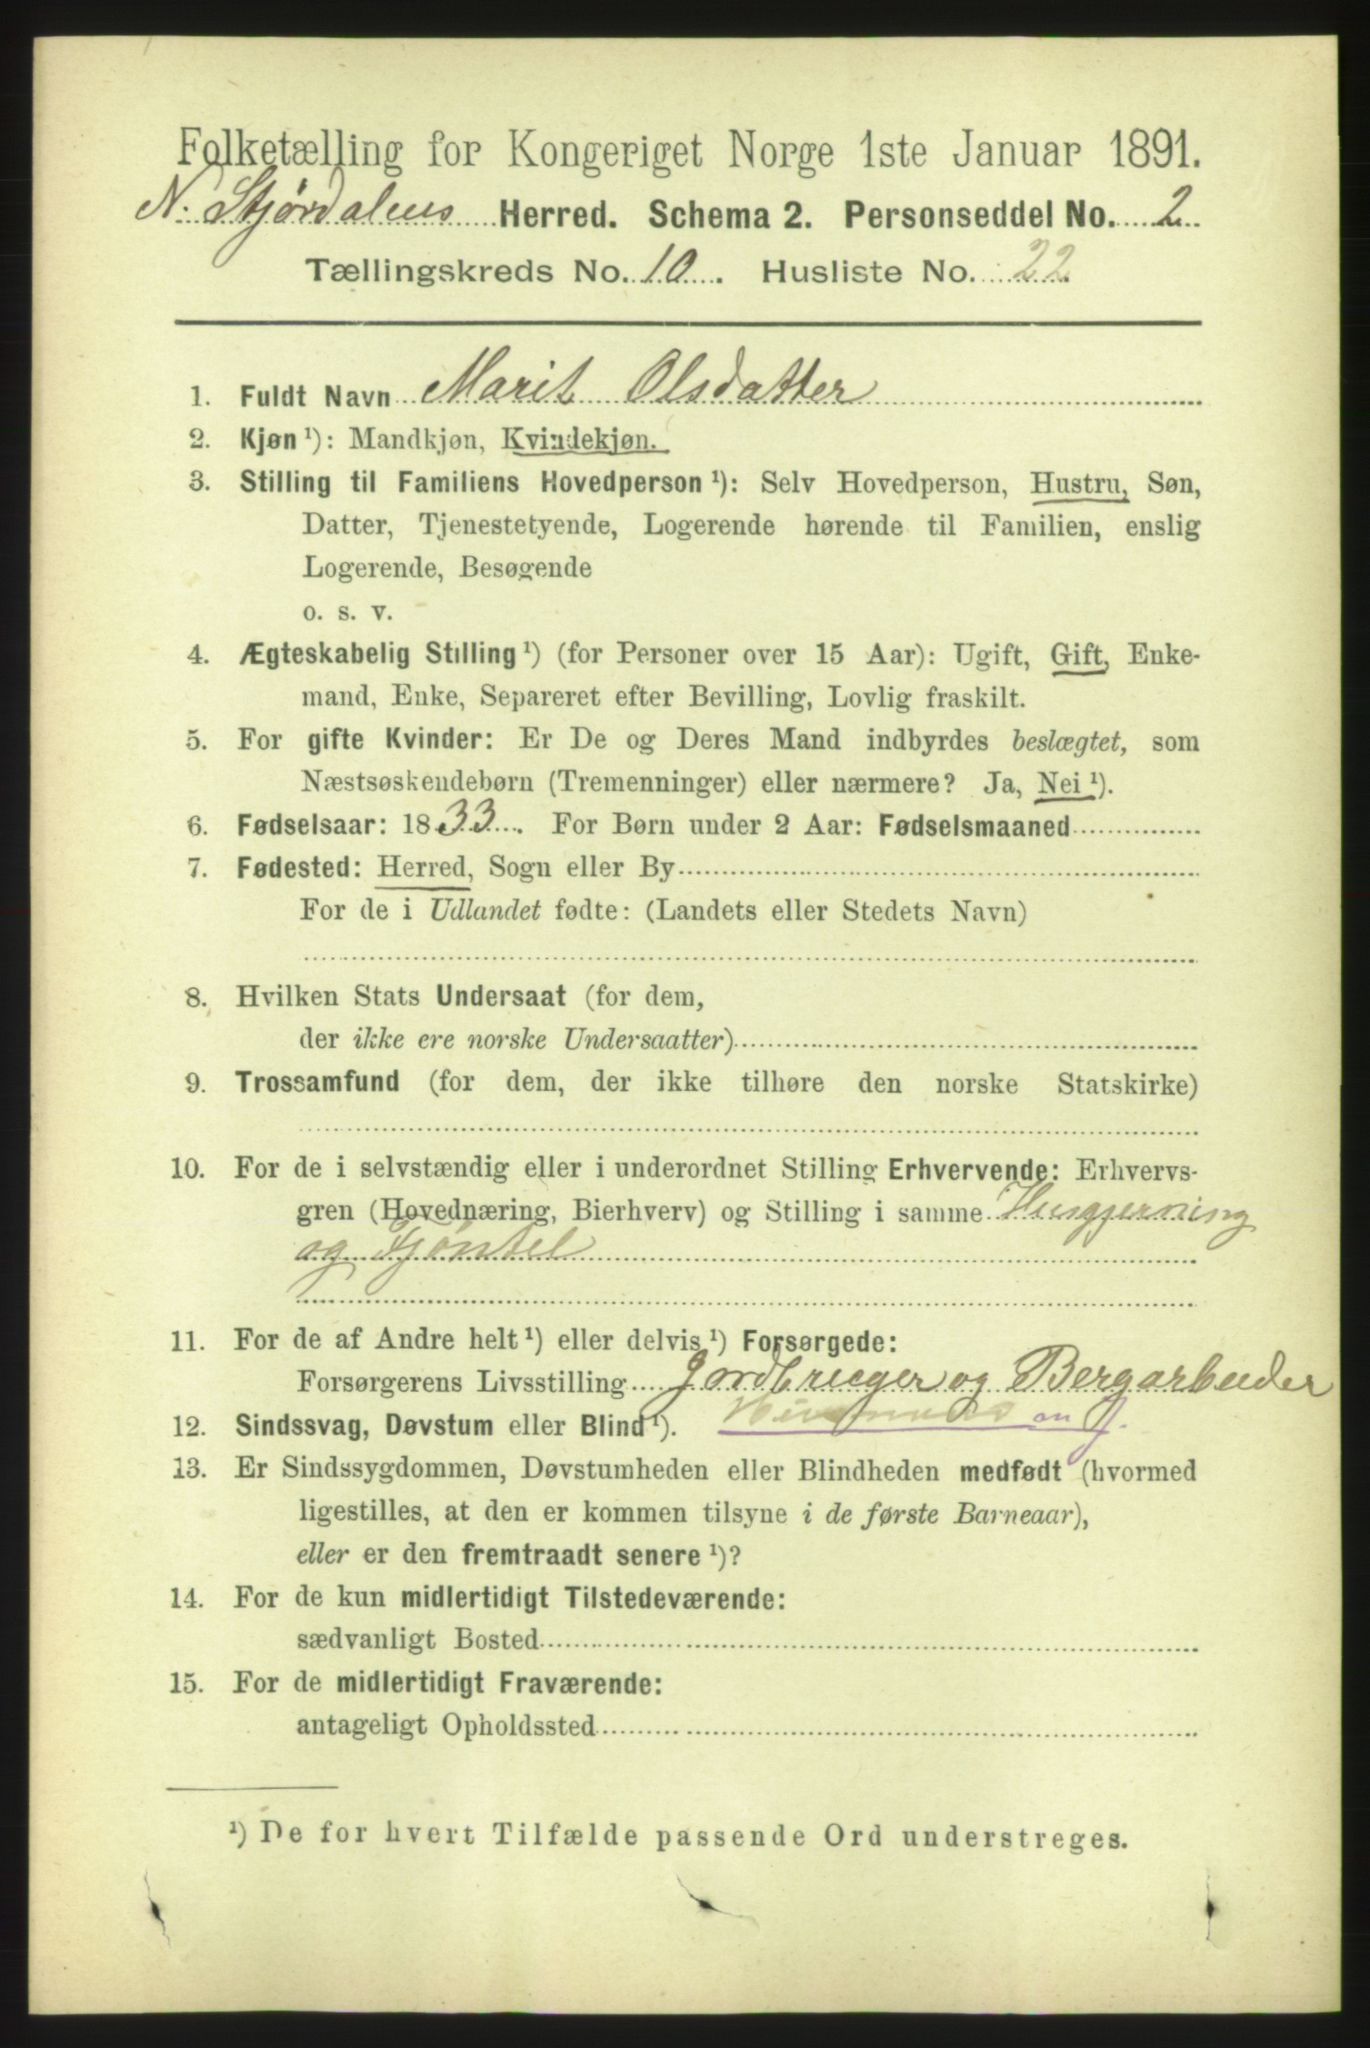 Folketælling for Kongeriget Norge 1ste Januar 1891.
N. Stjørdalens Herred. Schema 2. Personseddel No. 2
Tællingskreds No. 10. Husliste No. 22
1. Fuldt Navn Marit Olsdatter
2. Kjøn ¹): Mandkjøn, Kvindekjøn.
3. Stilling til Familiens Hovedperson ¹): Selv Hovedperson, Hustru, Søn,
Datter, Tjenestetyende, Logerende hørende til Familien, enslig
Logerende, Besøgende
o. s. v.
4. Ægteskabelig Stilling ¹) (for Personer over 15 Aar): Ugift, Gift, Enke-
mand, Enke, Separeret efter Bevilling, Lovlig fraskilt.
5. For gifte Kvinder: Er De og Deres Mand indbyrdes beslægtet, som
Næstsøskendebørn (Tremenninger) eller nærmere? Ja, Nei ¹).
6. Fødselsaar: 1833. For Børn under 2 Aar: Fødselsmaaned
7. Fødested: Herred, Sogn eller By
For de i Udlandet fødte: (Landets eller Stedets Navn)
8. Hvilken Stats Undersaat (for dem,
der ikke ere norske Undersaatter)
9. Trossamfund (for dem, der ikke tilhøre den norske Statskirke)
10. For de i selvstændig eller i underordnet Stilling Erhvervende: Erhvervs-
gren (Hovednæring, Bierhverv) og Stilling i samme Husgjerning
og Fjøsstel
11. For de af Andre helt ¹) eller delvis ¹) Forsørgede:
Forsørgerens Livsstilling Jordbruger og Bergarbeider
12. Sindssvag, Døvstum eller Blind ¹). Husmands m J.
13. Er Sindssygdommen, Døvstumheden eller Blindheden medfødt (hvormed
ligestilles, at den er kommen tilsyne i de første Barneaar),
eller er den fremtraadt senere ¹)?
14. For de kun midlertidigt Tilstedeværende:
sædvanligt Bosted
15. For de midlertidigt Fraværende:
antageligt Opholdssted
¹) De for hvert Tilfælde passende Ord understreges.